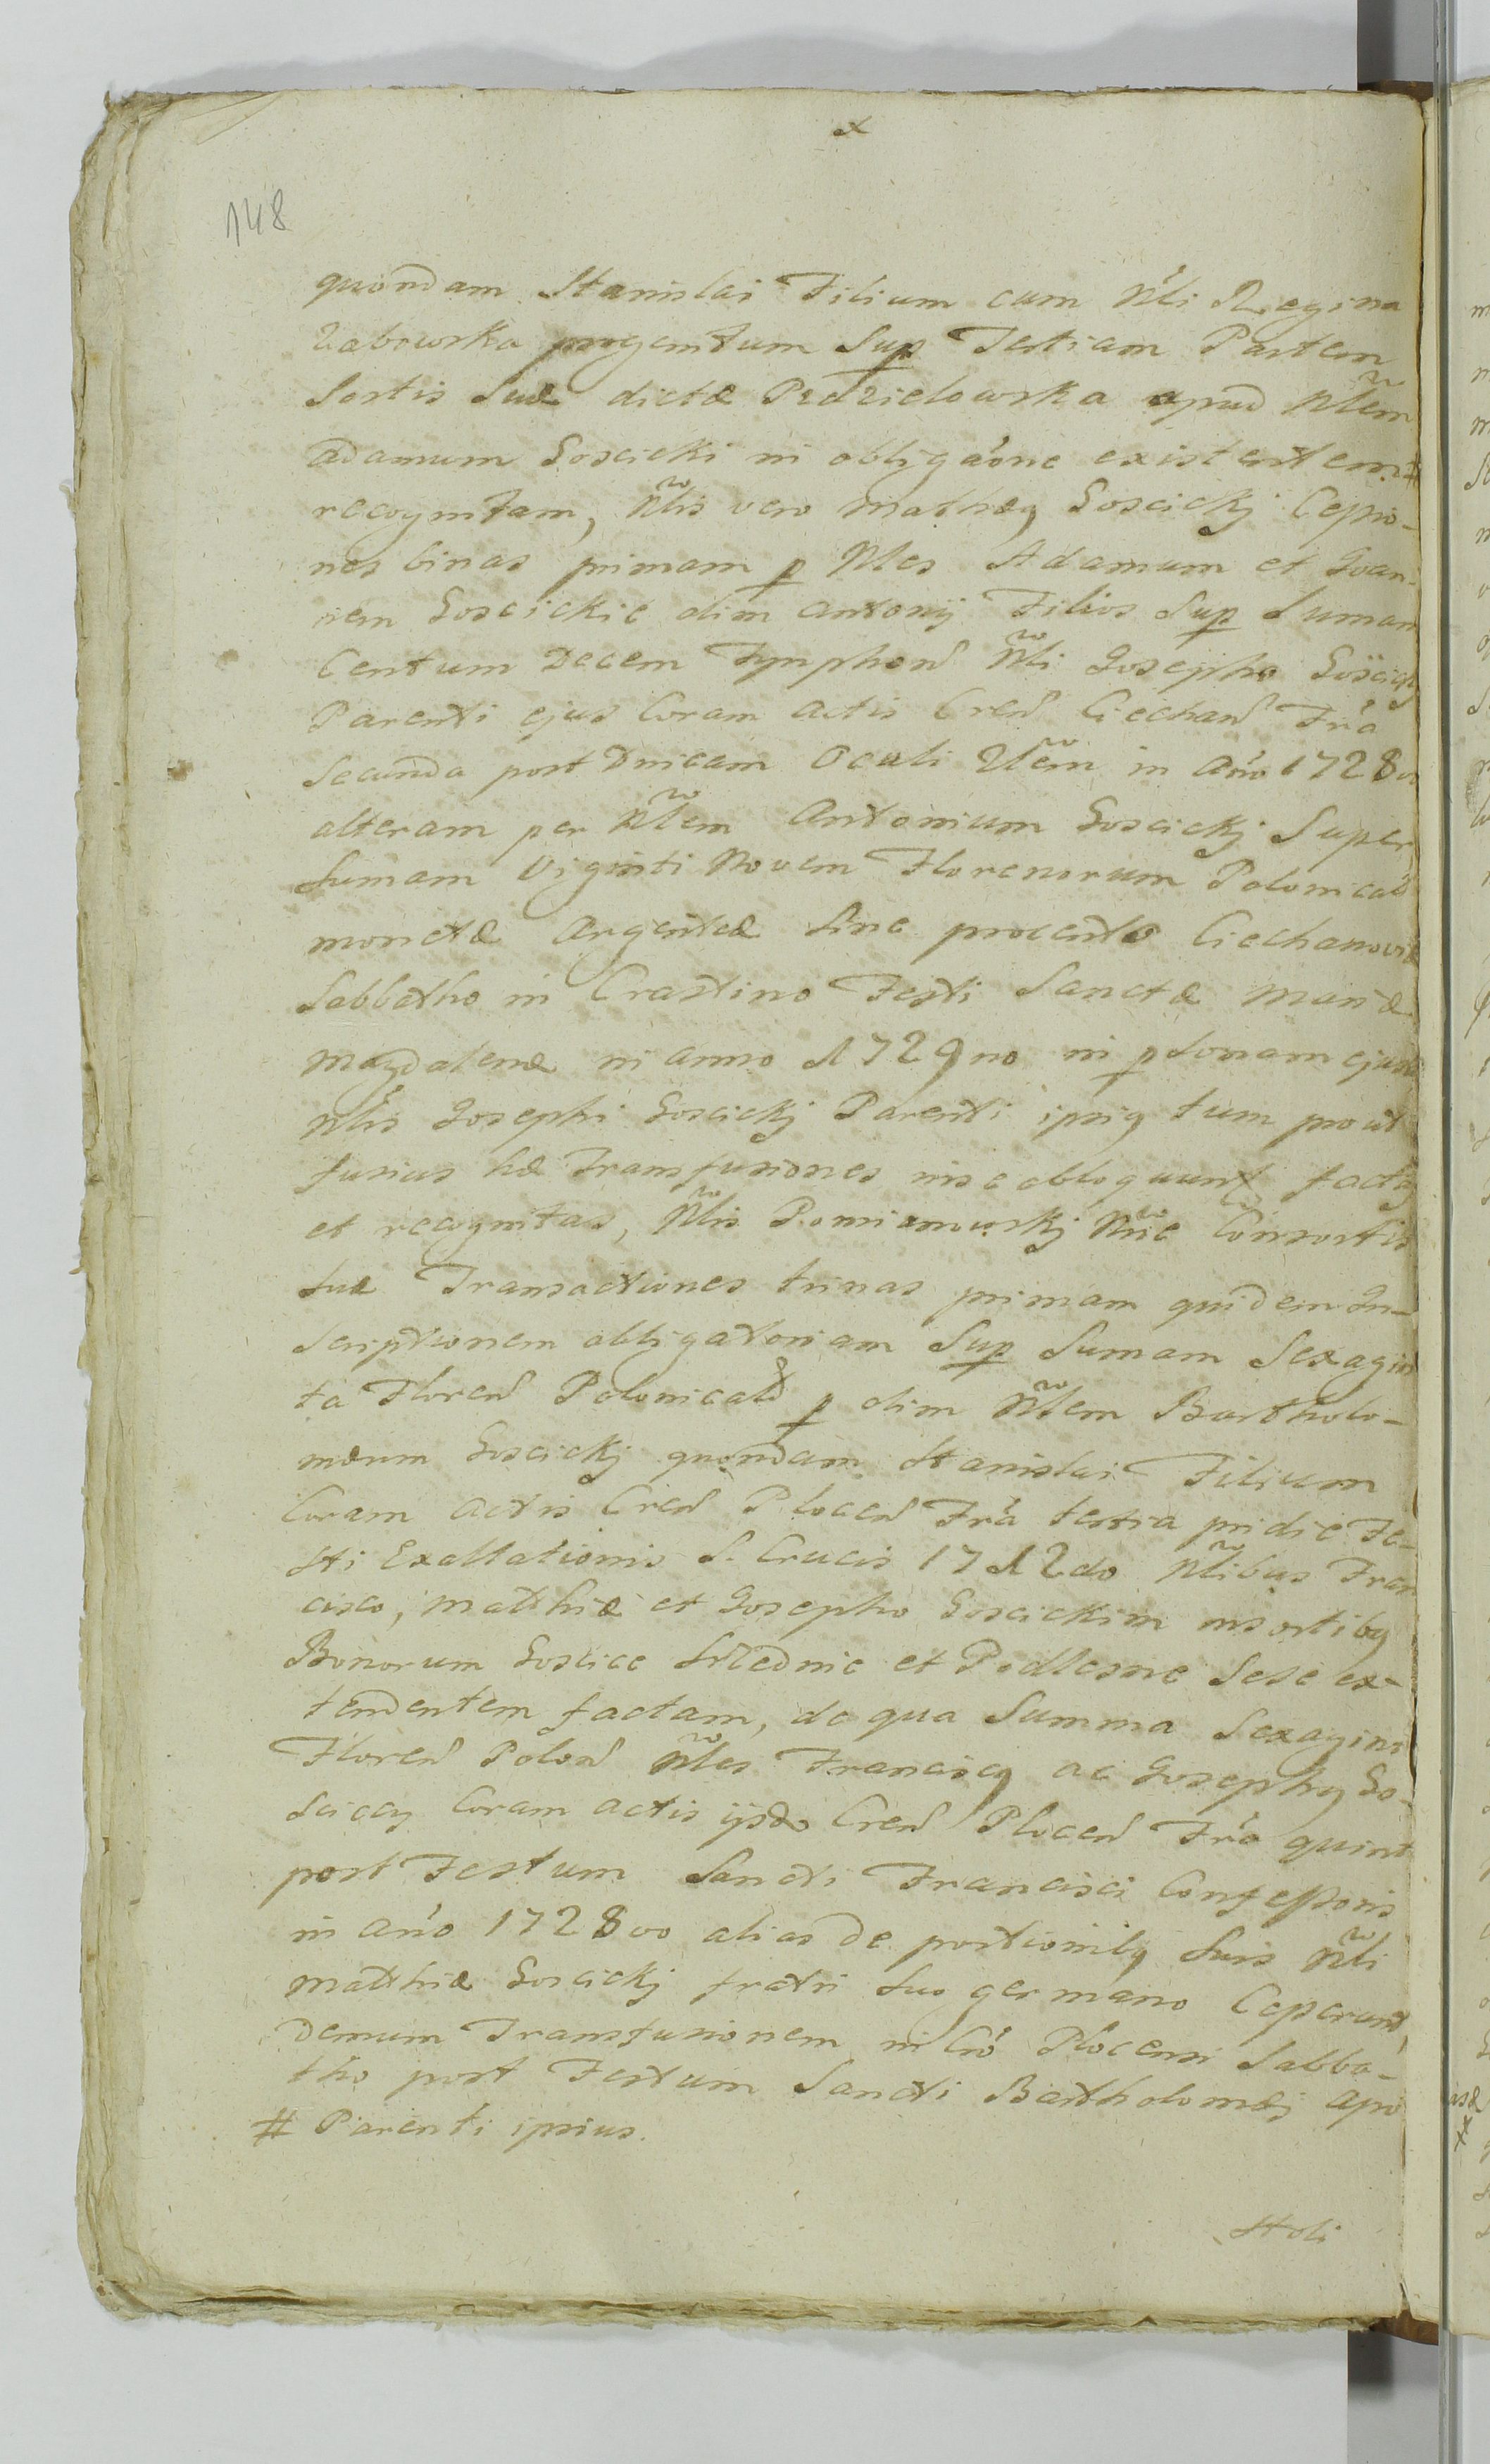 x
148
quondam Stanislai Filium cum Nli Regina
Zabowska progenitum Sup Tertiam Partem
Sortis Suæ dictæ Przdzielowska apud Nlem
adamum Goscicki in obligaone existentem #
recognitam, Nlis vero Mathæy Goscickj Cessio-
nes binas primam p Nles Adamum et Joan-
nem Goscickie olim Antonij Filios Sup Sumam
Centum Decem Tymphond Nli Josepho
Parenti ejus Coram actis Cren Ciechan Fra
Secunda post Dnicam Oculi in Ano 1728vo
alteram per Nlem Antonium Goscickj Super
Sumam Viginti Novem Florenorum Polonical
monetæ Argenteæ Sine procento Ciechanoviæ
Sabbatho in Crastino Festi Sanctæ Mariæ
Magdalenæ in anno 1729no in psonam ejusd
Nlis Josephi Goscickj Parenti ipsiq tum prout
fusius hæ Transfusiones in se obloquunt factas
et recognitas, Nlis Pomianowskj Consortis
Suæ Transactiones trinas primam quidem In-
scriptionem obligatoriam Sup Sumam Sexagin
ta Floren Polonical p olim Nlem Bartholo-
mæum Goscickj quondam Stanislai Filium
Coram actis Cren Plocen Fra tertia pridie Fe-
sti Exaltationis S. Crucis 1712do Nlibus Fran
cisco, Matthiæ et Josepho Goscickim in sortibq
Bonorum Goscice Srzednie et Podlesne Sese ex-
tendentem factam, de qua Summa Sexagint
Floren Polon Nles Franciscq ac Josephq Go-
sciccy Coram actis ijsd Cren Plocen Fra quint
post Festum Sancti Francisci Confessoris
in ano 1728vo alias de portionibq Suis Nli
Matthiæ Goscickj fratri Suo germano Ceperunt,
demum Transfusionem in Cro Plocensi Sabba-
tho post Festum Sancti Bartholomæj apo
# Parenti ipsius.
Stoli